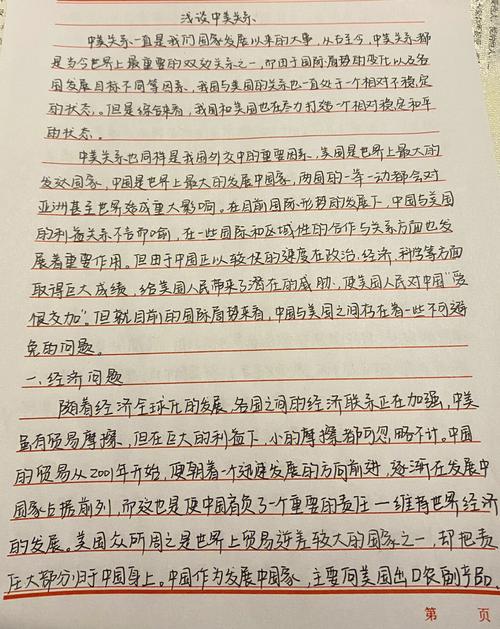 浅谈中美关系
中美关系一直是我们国家发展以来的大事，从古至今，中美关系都
是当今世界上最重要的双效关系之一，而由于国际局势的变化以及各
国发展目标不同等因素，我国与美国的关系也一直处于一个相对不稳定
的状态。但是综合来看，我国和美国也在尽力打造一个相对稳定和平
的状态。
中美关系也同样是我国外交中的重要因素，美国是世界上最大的
发达国家，中国是世界上最大的发展中国家，两国的一举一动都会对
亚洲甚至世界造成重大影响。在目前国际形势的发展下，中国与美国
的利益关系不言即喻，在一些国际和区域性的合作与关系方面也发
展着重要作用。但由于中国正以较快的速度在政治、经济、科学等方面
取得巨大成绩，给美国人民带来了潜在的威胁，使美国人民对中国“爱
恨交加”。但就目前的国际局势来看，中国与美国之间存在着一些不可避
免的问题。
一、经济问题
随着经济全球化的发展，各国之间的经济联系正在加强，中美
虽有贸易摩擦，但在巨大的利益下，小的摩擦都可忽略不计。中国
的贸易从2001年开始，便朝着一个迅速发展的方向前进，逐渐在发展中
国家占据前列，而这也是使中国肩负了一个重要的责任一维持世界经济
的发展。美国众所周之是世界上贸易逆差较大的国家之一，却把责
任大部分归于中国身上。中国作为发展中国家，主要向美国出口农副产品、
第 页